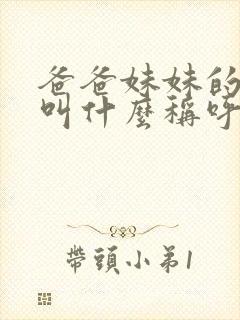 爸爸妹妹的
叫什麼稱呼
帶頭小弟1